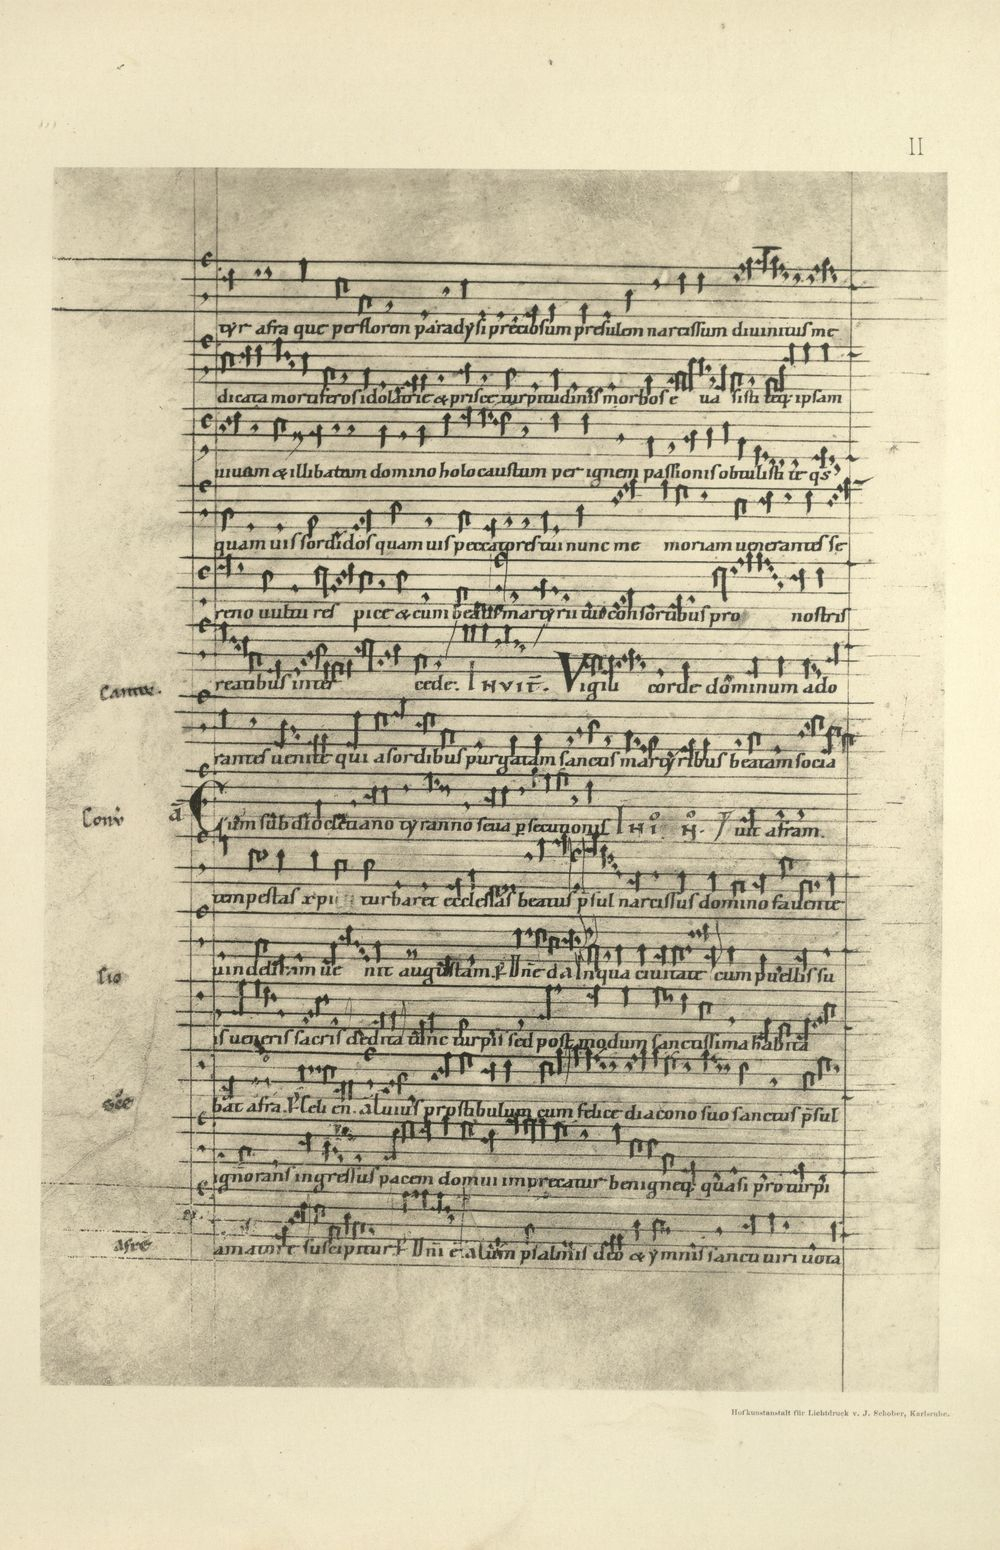 II
tyr afra que per florem paradysi preciosum presulem narcissum divinitus me
dicata mortiferos idolatrie & prisce turpitudinis morbos e ua sisti teq; ipsam
uiuam & illibatam domino holocaustum per ignem passionis obtulisti te qs
quam uis sordidos quam uis peccatores tui nunc me moriam uenerantes se
reno uultu res pice & cum beatis martyrii tui consortibus pro nostris
reatibus inter cede. INVIT. Vigili corde dominum ado
Cantic.
rantes uenite qui a sordibus purgatam sanctis martyribus beatam socia
Conv a Cum sub diocletiano tyranno seua psecutionis IN I N. uit afram.
tempestas xpi turbaret ecclesias beatus psul narcissus domino fauente
uindelicam ue nit augustam. Dne d. a In qua ciuitate cum puellis su
sio
is ueneris sacris dedita tunc turpis sed post modum sanctissima habita
bat afra. Celi en. a luius prostibulum cum felice diacono suo sanctus psul
sce
ignorans ingressus pacem domui imprecatur benigneq; quasi pro turpi
amatore suscipitur Dni e. a lum psalmis deo & ymnis sancti uiri uota
afre
Hofkunstanstalt für Lichtdruck v. J. Schober, Karlsruhe.